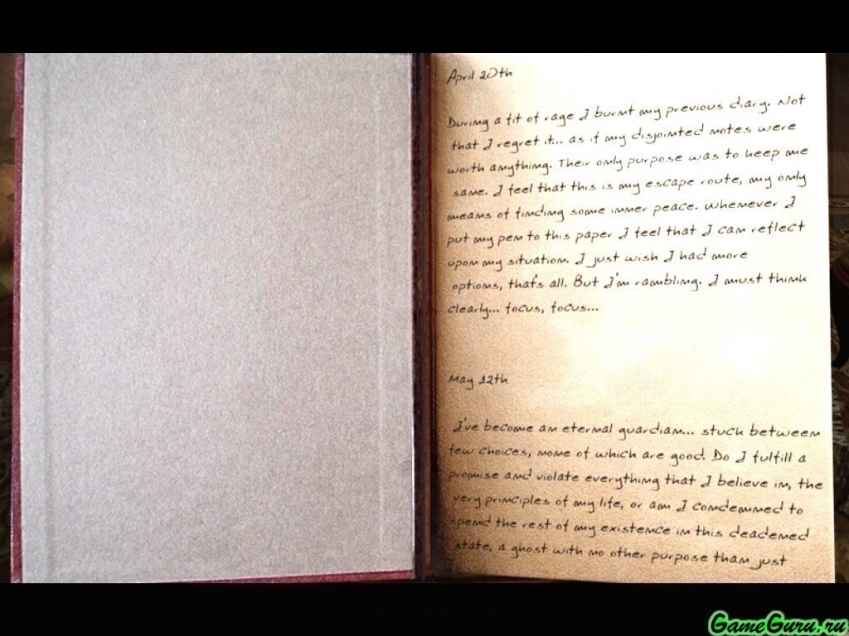 April 20th
During a fit of rage I burnt my previous diary. Not
that I regret it... as if my disjointed notes were
worth anything. Their only purpose was to keep me
sane. I feel that this is my escape route, my only
means of finding some inner peace. Whenever I
put my pen to this paper I feel that I can reflect
upon my situation. I just wish I had more
options, that's all. But I'm rambling. I must think
clearly... focus, focus...
May 12th
I've become an eternal guardian... stuck between
few choices, none of which are good. Do I fulfill a
promise and violate everything that I believe in, the
very principles of my life, or am I condemned to
spend the rest of my existence in this deadened
state, a ghost with no other purpose than just
GameGuru.ru